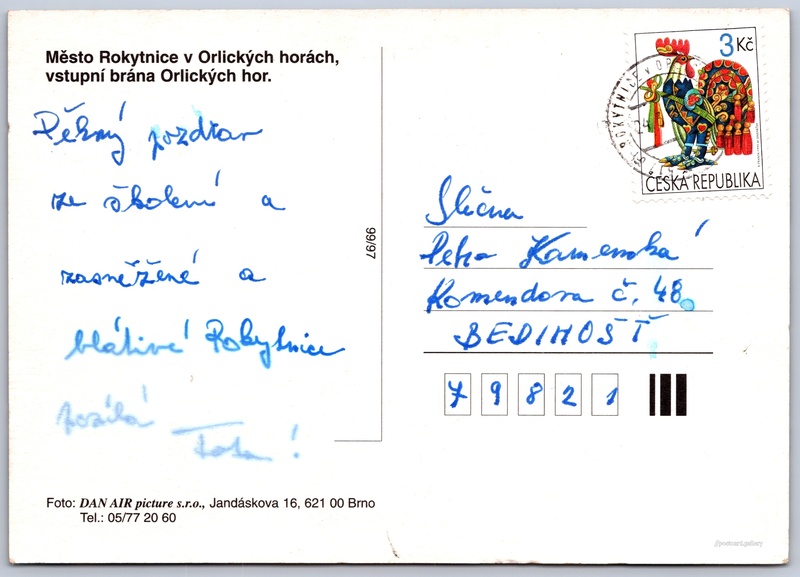 Město Rokytnice v Orlických horách,
vstupní brána Orlických hor.
3 Kč
ČESKÁ REPUBLIKA
Pěkný pozdrav
ze školení a
zasněžené a
blátivé Rokytnice
posílá
Tata!
99/97
Slečna
Petra Kamenská
Komendova č. 48
BEDIHOŠŤ
79821
Foto: DAN AIR picture s.r.o., Jandáskova 16, 621 00 Brno
Tel.: 05/77 20 60